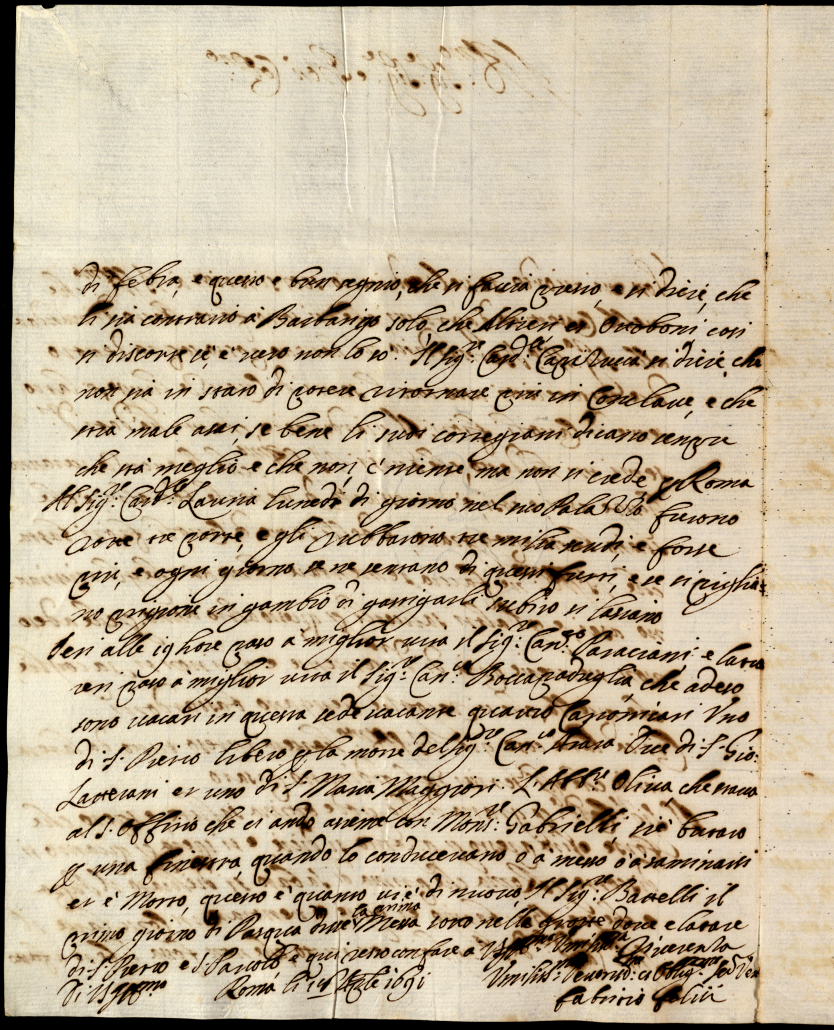 di febra, e questo e buon agnio, che si faccia presto, e si dice, che
li sia contrario à Barbarigo solo, che Altieri et Ottoboni così
si discorre se è vero non lo so. Il Sig.re Card.le Capizucca si dice, che
non sia in stato di potere ritornare più in Conclave, e che
stia male assai, se bene li suoi cortegiani dicano sempre
che stà meglio e che non, c'niente, ma non si crede p Roma
Al Sig.re Card.le Lauria lunedì di giorno nel suo Palazzo furono
rotte tre porte, e gli rubbarono tre milia scudi, e forse
più, e ogni giorno se ne sentano di questi furti, e se si piglia
no prigione in gambio di gastigarli subito si lassano
Ieri alle 19 hore passò a miglior vita il Sig.re Can.co Paraciani e l'altro
ieri passò à miglior vita il Sig.re Can.co Roccapaduglia, che adesso
sono vacati in questa sede vacante quattro Canonicati Uno
di S. Pietro libero p la morte del Sig.re Can.co due di S. Gio:
Laterani et uno di S. Maria Maggiori. L'Abb.e Oliva, che stava
al S. Offitio che ci andò assieme con Mons.re Gabrielli si è buttato
p una finestra, quando lo conducevano ò à messa ò a esaminarsi
et è Morto, questo è quanto vi è di nuovo Il Sig.re Battelli il
primo giorno di Pasqua disse la prima Messa sotto nelle grotte dove e l'altare
di S. Pietro e S. Paolo, e qui resto con fare a V.S. Ill.ma Umiliss.a Riverenza
Di V.S. Ill.ma Roma li 18 Aple 1691 Umiliss.o Devotiss.o et Oblig.mo Ser.re Vero
Fabritio